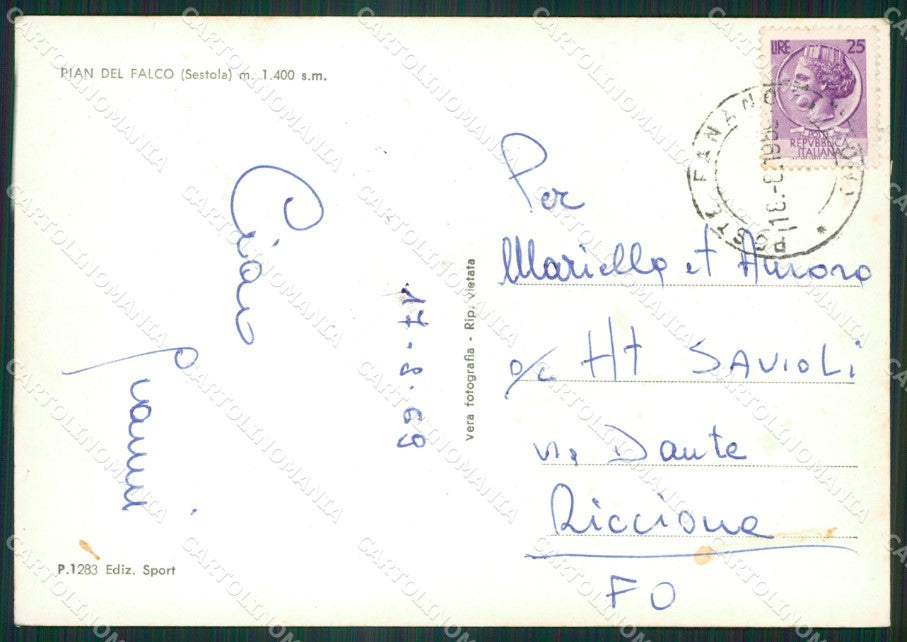 PIAN DEL FALCO (Sestola) m. 1.400 s.m.
Ciao
Gianni
17-8-69
P.1283 Ediz. Sport
Vera fotografia - Rip. vietata
LIRE 25
REPVBBLICA
ITALIANA
FANANO
POSTE
Per
Mariella et Aurora
c/c Ht SAVIOLI
via Dante
Riccione
FO
CARTOLINOMANIA